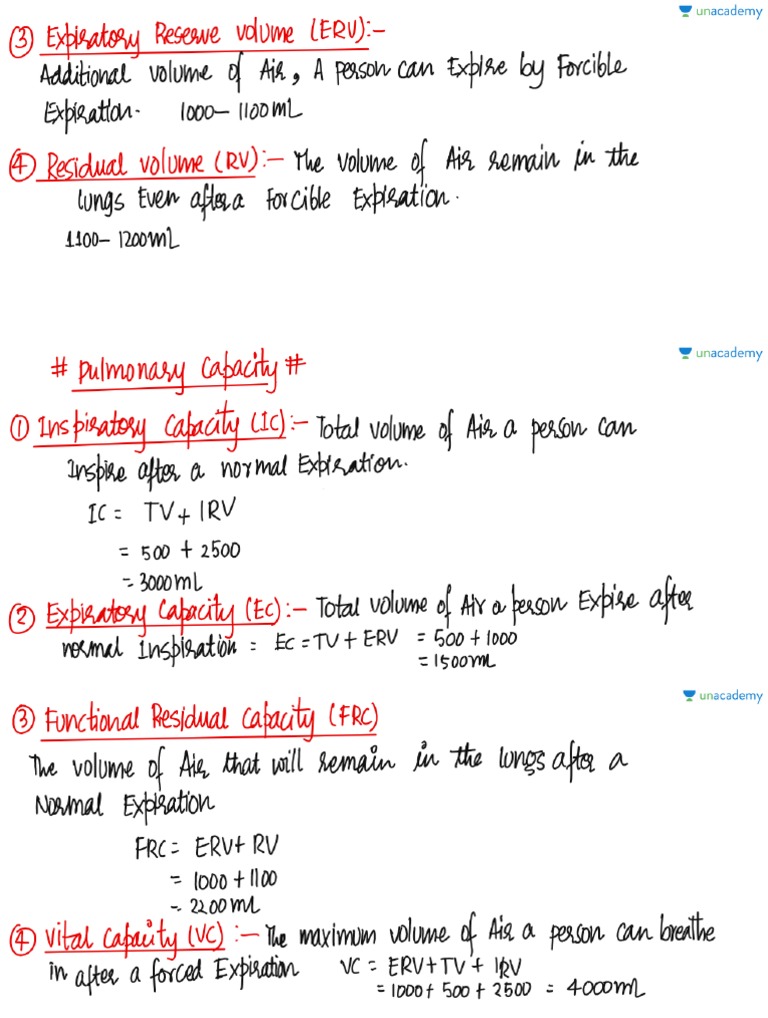 unacademy
③ Expiratory Reserve volume (ERV):-
Additional volume of Air, A person can Expire by Forcible
Expiration. 1000-1100mL
④ Residual volume (RV):- The volume of Air remain in the
lungs Even after a Forcible Expiration.
1100-1200mL
unacademy
# Pulmonary Capacity #
① Inspiratory Capacity (IC):- Total volume of Air a person can
Inspire after a normal Expiration.
IC = TV + IRV
= 500 + 2500
= 3000mL
② Expiratory Capacity (EC):- Total volume of Air a person Expire after
normal Inspiration = EC = TV + ERV = 500 + 1000
= 1500mL
unacademy
③ Functional Residual Capacity (FRC)
The volume of Air that will remain in the lungs after a
Normal Expiration
FRC = ERV + RV
= 1000 + 1100
= 2200mL
④ Vital Capacity (VC) :- The maximum volume of Air a person can breathe
in after a forced Expiration VC = ERV + TV + IRV
= 1000 + 500 + 2500 = 4000mL